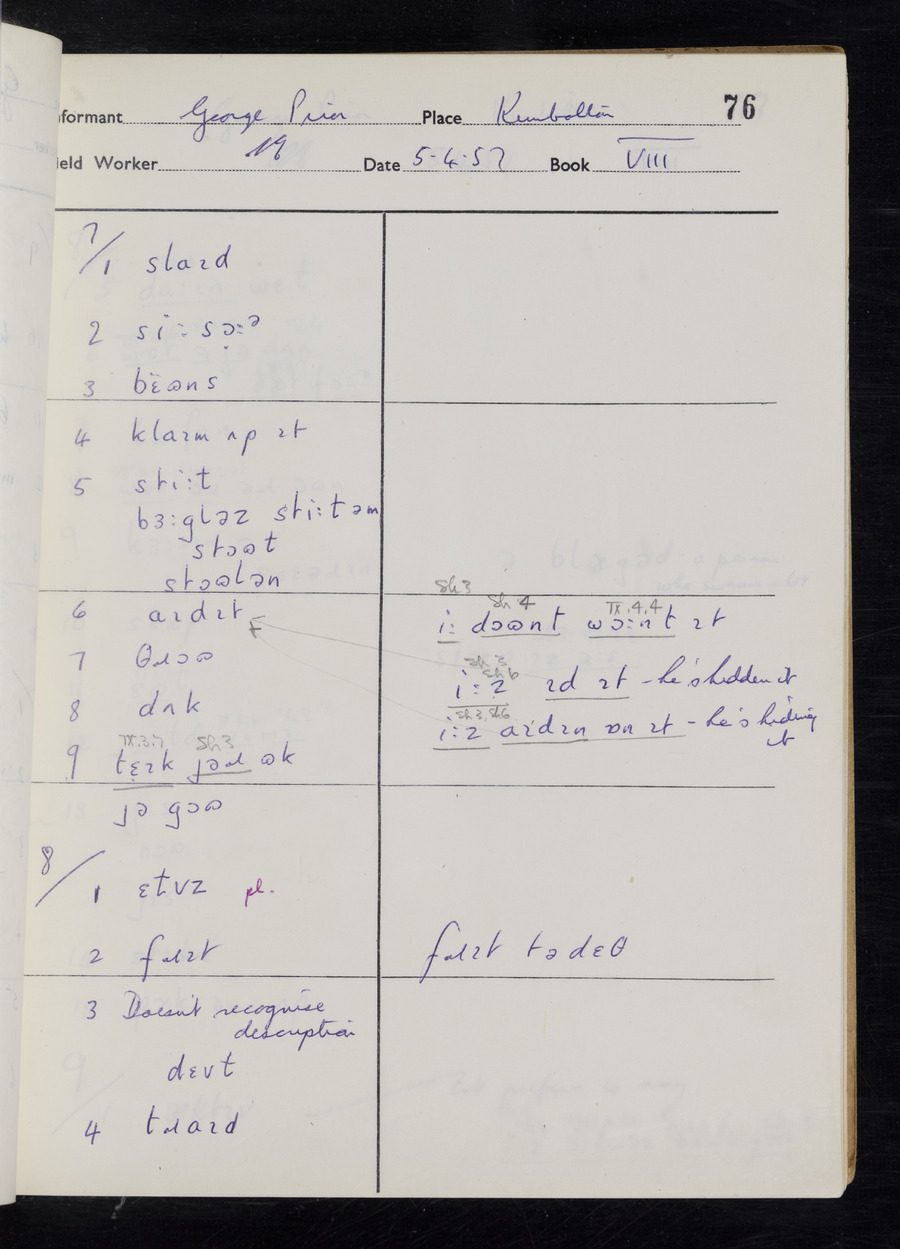 76
Informant George Prior Place Kimbolton
Field Worker Date 5-4-57 Book VIII
7/1 slaɪd
2 siː sɔːᵊ
3 bɛ̈ɷns
4 klaɪm ʌp ɪt
5 stɹiːt
bɜːgləz stɹiːt əm
stɔɷt
stɔɷlən
6 aɪd ɪt
7 θɹɔɷ
8 dʌk
9 tɛɪk jəɹ ɷk
IX.3.7 Sh3
jə gɔɷ
8/1 ɛtvz pl.
2 fɹɪt
3 Doesn't recognise
description
dɛvt
4 tɹaɪd
Sh3
Sh 4 IX.4.4
iː dɔɷnt ɷɔːnt ɪt
iːz ɪd ɪt - he's hidden it
Sh3, Sh6
iːz aɪdɪn ɒn ɪt - he's hiding
it
fɹɪt tə dɛθ